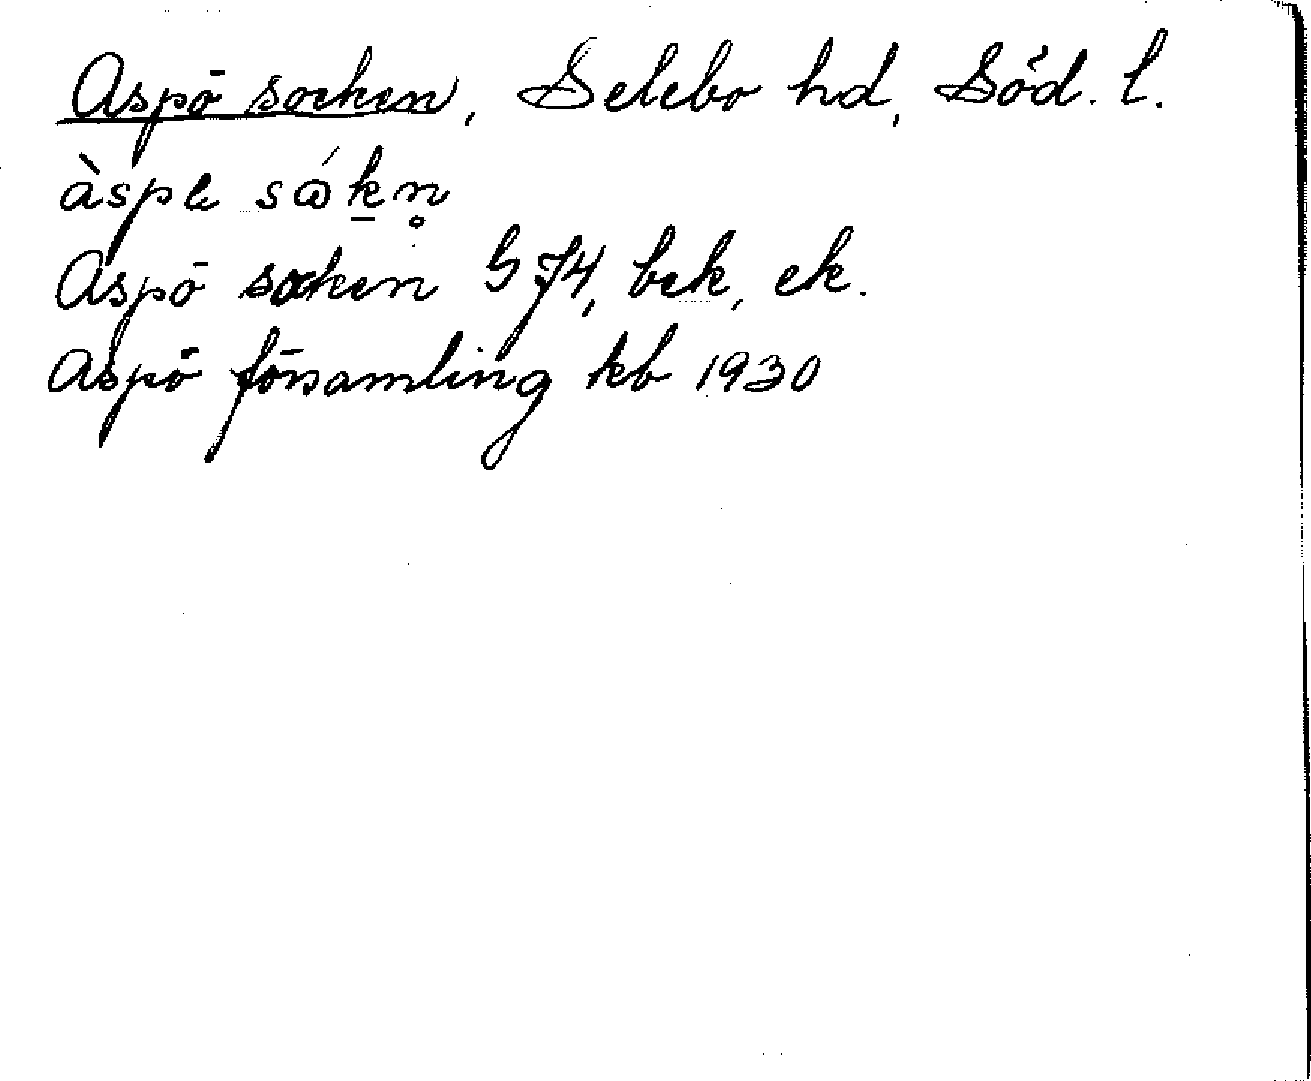 Aspö socken, Selebo hd, Söd. l.
àspe sɷ́k̠n̥
Aspö socken G J4, bek, ek.
Aspö församling kb 1930